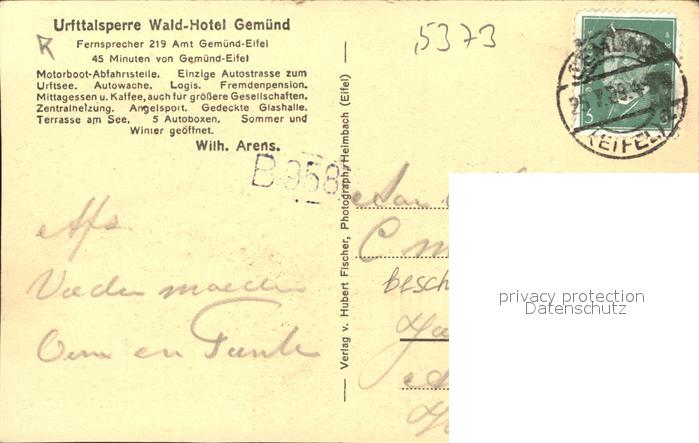 Urfttalsperre Wald-Hotel Gemünd
Fernsprecher 219 Amt Gemünd-Eifel
45 Minuten von Gemünd-Eifel
Motorboot-Abfahrtstelle. Einzige Autostrasse zum
Urftsee. Autowache. Logis. Fremdenpension.
Mittagessen u. Kaffee, auch für größere Gesellschaften.
Zentralheizung. Angelsport. Gedeckte Glashalle.
Terrasse am See. 5 Autoboxen. Sommer und
Winter geöffnet.
Wilh. Arens.
R
B 958
Afs
Vader moeder
Oom en Tante
Verlag v. Hubert Fischer, Photograph, Heimbach (Eifel)
5373
3
(EIFEL)
besch
privacy protection
Datenschutz